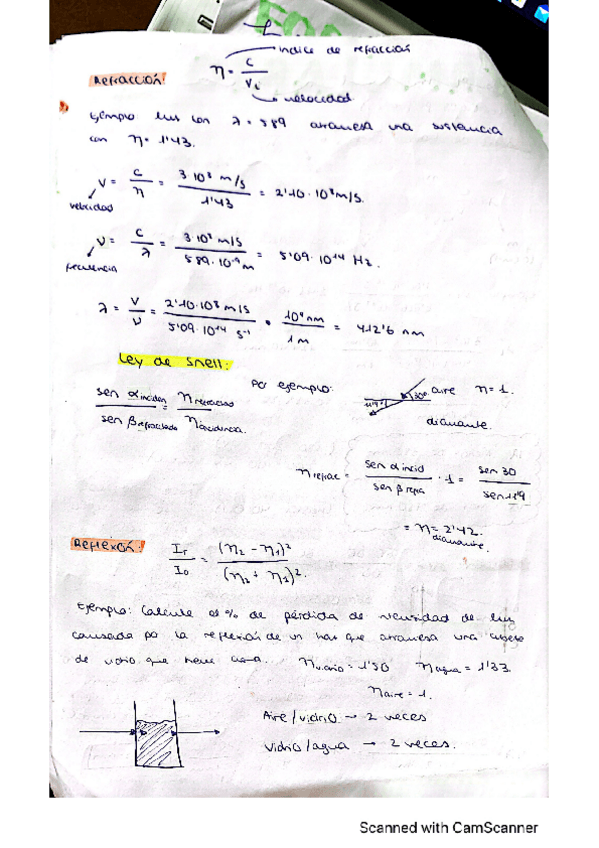 índice de refracción
Refracción: η = c / Vi
velocidad
Ejemplo luz con λ = 589 atraviesa una sustancia
con η = 1'43.
V = c / η = 3·10⁸ m/s / 1'43 = 2'10·10⁸ m/s.
velocidad
ν = c / λ = 3·10⁸ m/s / 589·10⁻⁹ m = 5'09·10¹⁴ Hz.
frecuencia
λ = V / ν = 2'10·10⁸ m/s / 5'09·10¹⁴ s⁻¹ · 10⁹ nm / 1 m = 412'6 nm
Ley de Snell:
sen α inciden / sen β refractado = η refractado / η incidencia.
Por ejemplo:
30° aire η = 1.
11'9°
diamante.
η refrac = sen α incid / sen β refra · 1 = sen 30 / sen 11'9
= η = 2'42.
diamante.
Reflexión: Ir / Io = (η₂ - η₁)² / (η₂ + η₁)².
Ejemplo: Calcule el % de pérdida de intensidad de luz
causada por la reflexión de un haz que atraviesa una cubeta
de vidrio que tiene agua. η vidrio = 1'50 η agua = 1'33
η aire = 1.
Aire/vidrio → 2 veces
Vidrio/agua → 2 veces.
Scanned with CamScanner